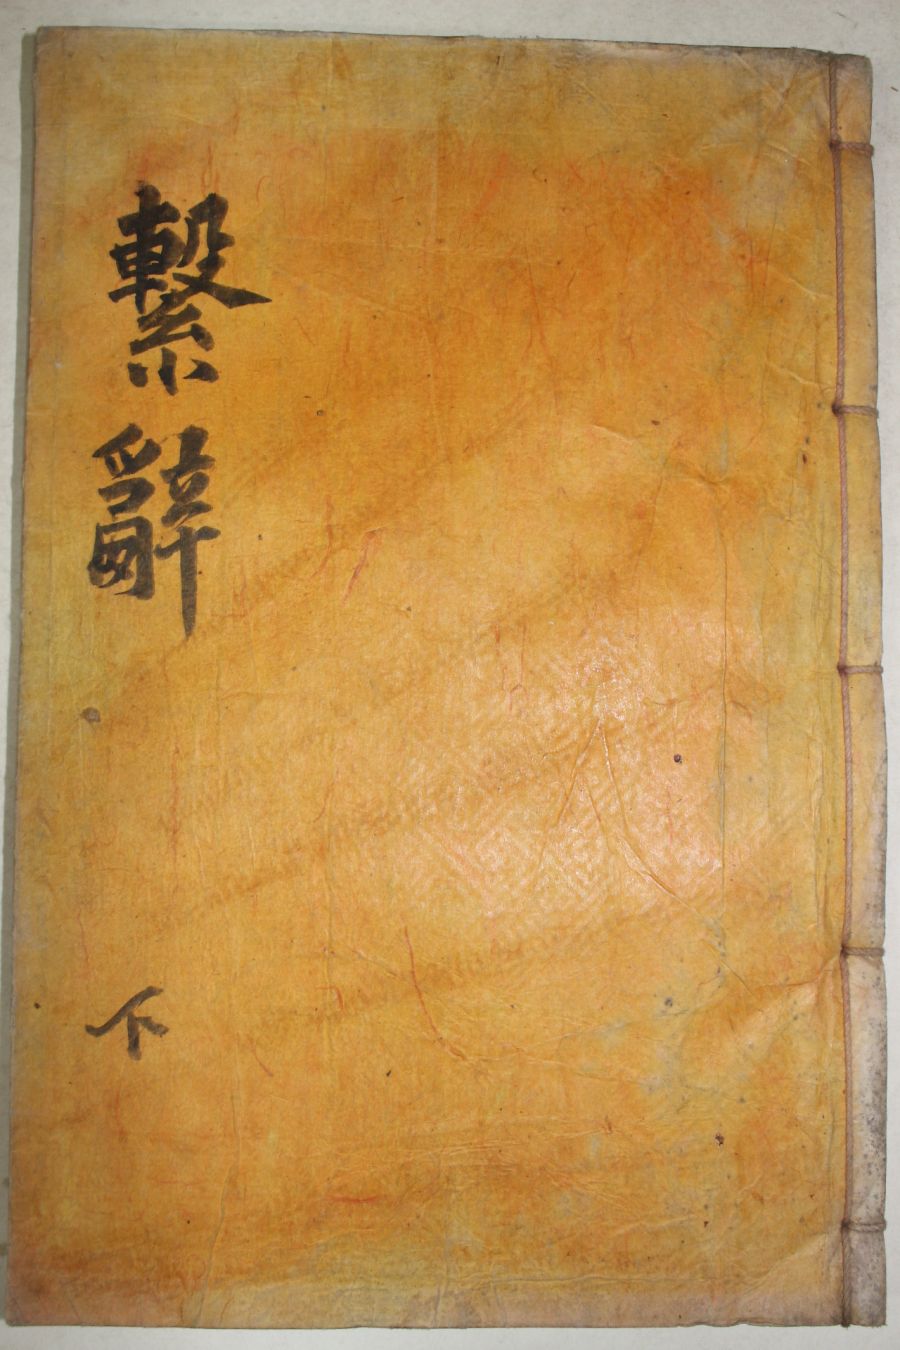 繫辭
下